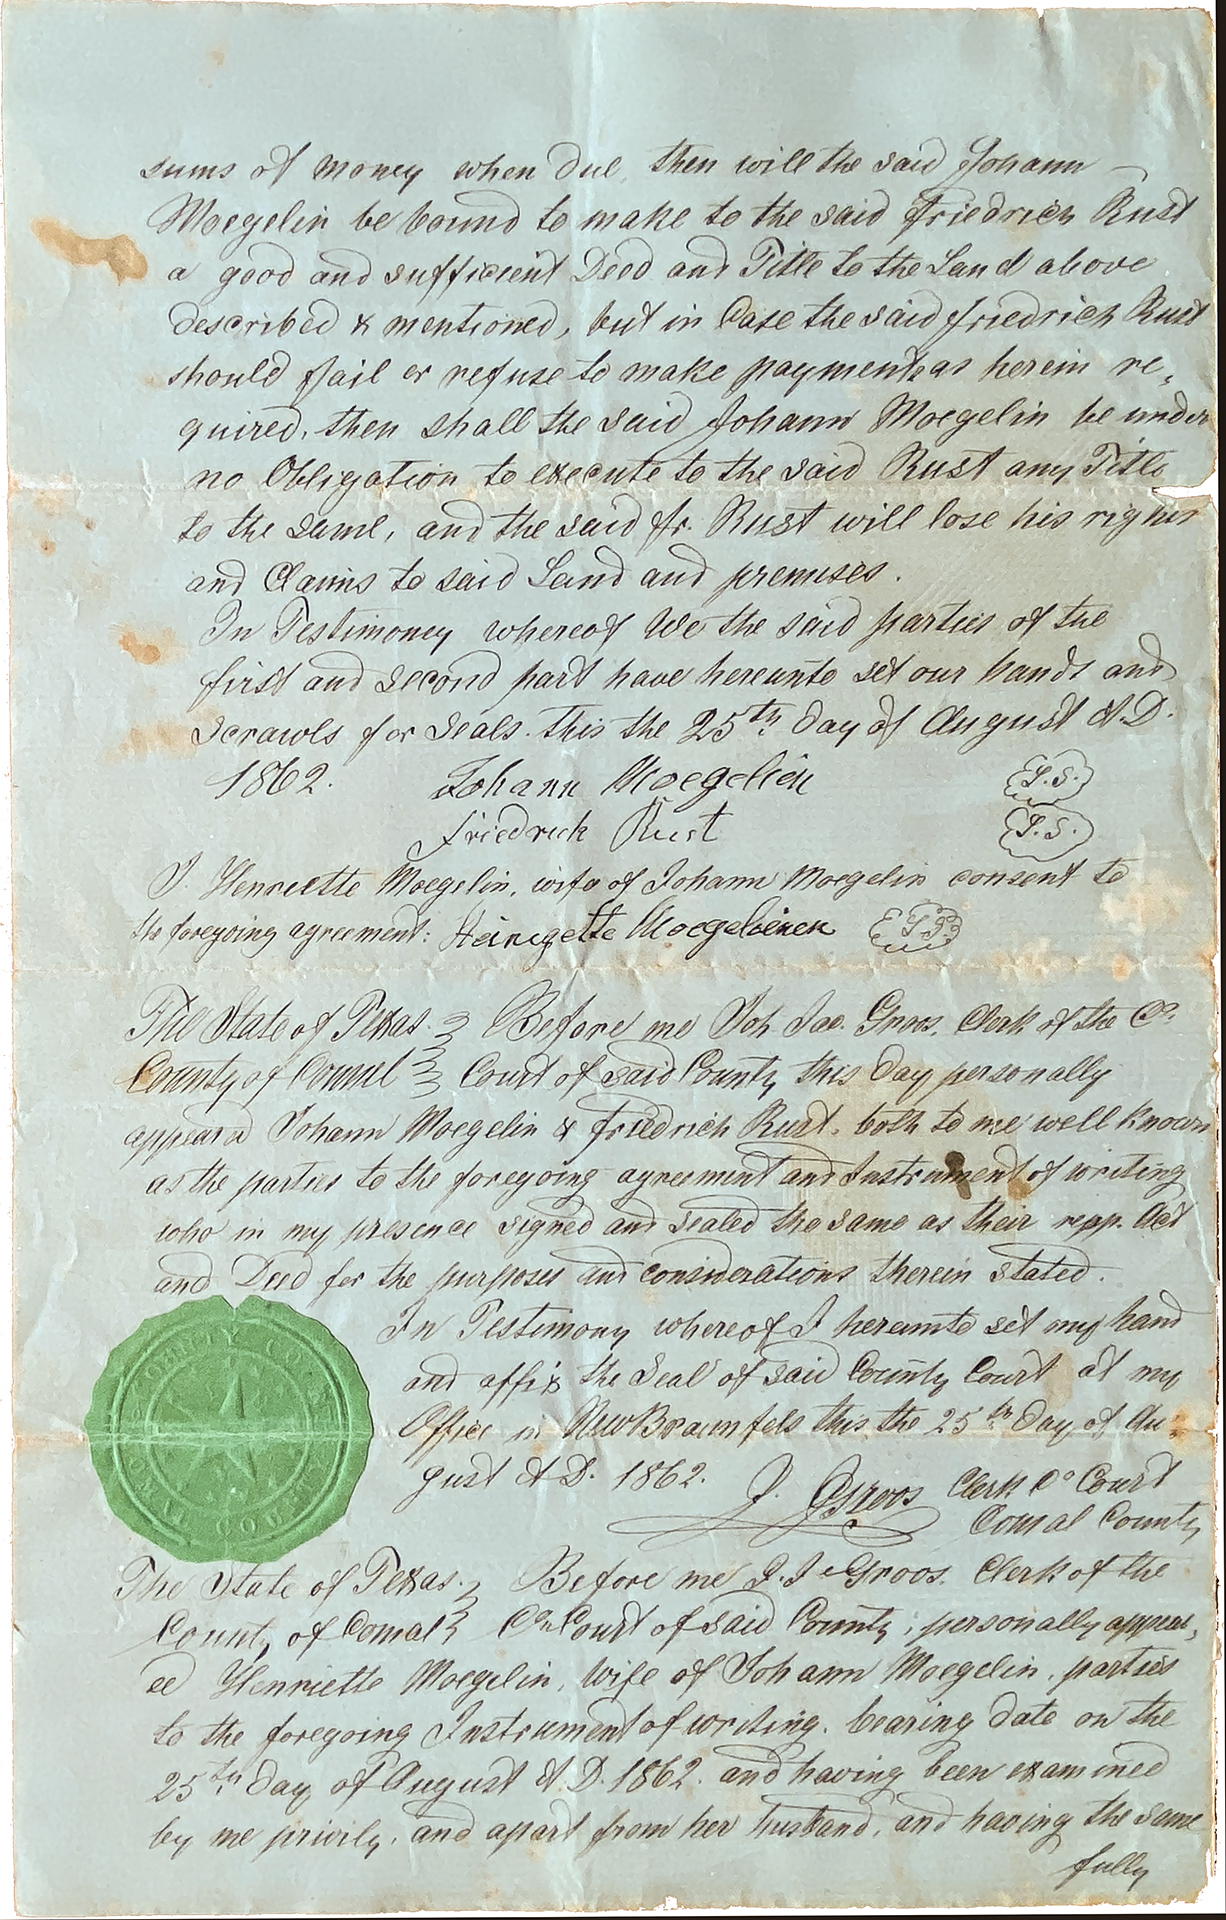 sums of money when due, then will the said Johann
Moegelin be bound to make to the said Friedrich Rust
a good and sufficient Deed and Title to the Land above
described & mentioned, but in Case the said Friedrich Rust
should fail or refuse to make payment as herein re-
quired, then shall the said Johann Moegelin be under
no Obligation to execute to the said Rust any Title
to the same, and the said Fr. Rust will lose his rights
and Claims to said Land and premises.
In Testimoney whereof We the said parties of the
first and second part have hereunto set our hands and
scrawls for seals. this the 25th day of August A.D.
1862. Johann Moegelin (L.S.)
Friedrich Rust (L.S.)
I. Henriette Moegelin, wife of Johann Moegelin consent to
the foregoing agreement:
The State of Texas. Before me Joh. Jac. Groos. Clerk of the Co.
County of Comal Court of said County this day personally
appeared Johann Moegelin & Friedrich Rust. both to me well known
as the parties to the foregoing agreement and Instrument of writing
who in my presence signed and sealed the same as their repp. Act
and Deed for the purposes and considerations therein stated.
In Testimony whereof I hereunto set my hand
and affix the Seal of said County Court at my
Office in New Braunfels this the 25th day of Au-
gust A.D. 1862. J. Groos Clerk Co Court
Comal County
COUNTY COURT
COMAL COUNTY
The State of Texas. Before me J. J. Groos. Clerk of the
County of Comal Co. Court of said County, personally appear-
ed Henriette Moegelin, Wife of Johann Moegelin, parties
to the foregoing Instrument of writing. bearing date on the
25th day of August A.D. 1862. and having been examined
by me privily, and apart from her husband, and having the same
fully